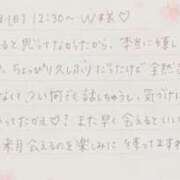 1(日) 12:30〜 W様♡
ると思ってなかったから、本当に嬉し
、ちょっぴり久しぶりだったけど全然
なくてつい何でも話しちゃうし、気づけ
ってたかな♡? また早く会えるといい
来月会えるのを楽しみに 待ってますね